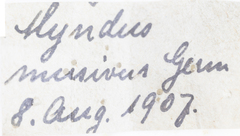 Myndus
musivus Germ
8. Aug. 1907.